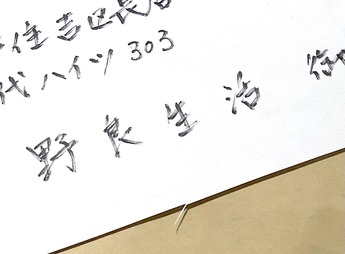 住吉区長
代ハイツ 303
野良生活 御